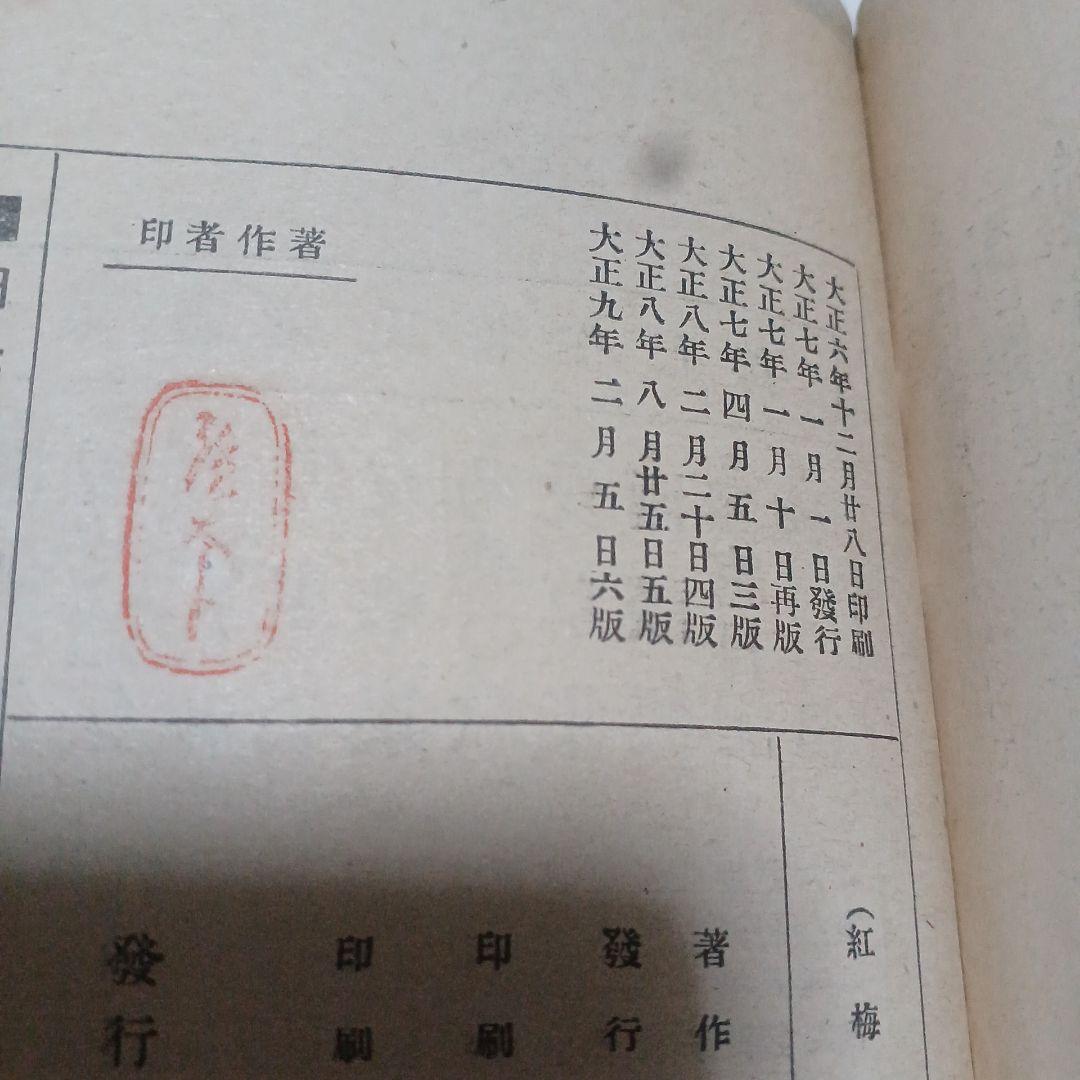 大正六年十二月廿八日印刷
大正七年一月一日發行
大正七年一月十日再版
大正七年四月五日三版
大正八年二月二十日四版
大正八年八月廿五日五版
大正九年二月五日六版
印者作著
(紅梅
著作
發行
印刷
印刷
發行